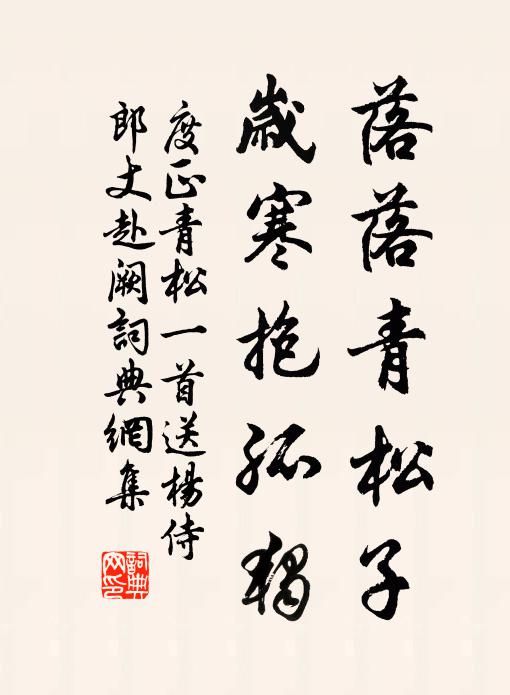 落落青松子
歲寒抱孤獨
度正青松一首送楊侍
郎丈赴闕詞典網集
詞典網印